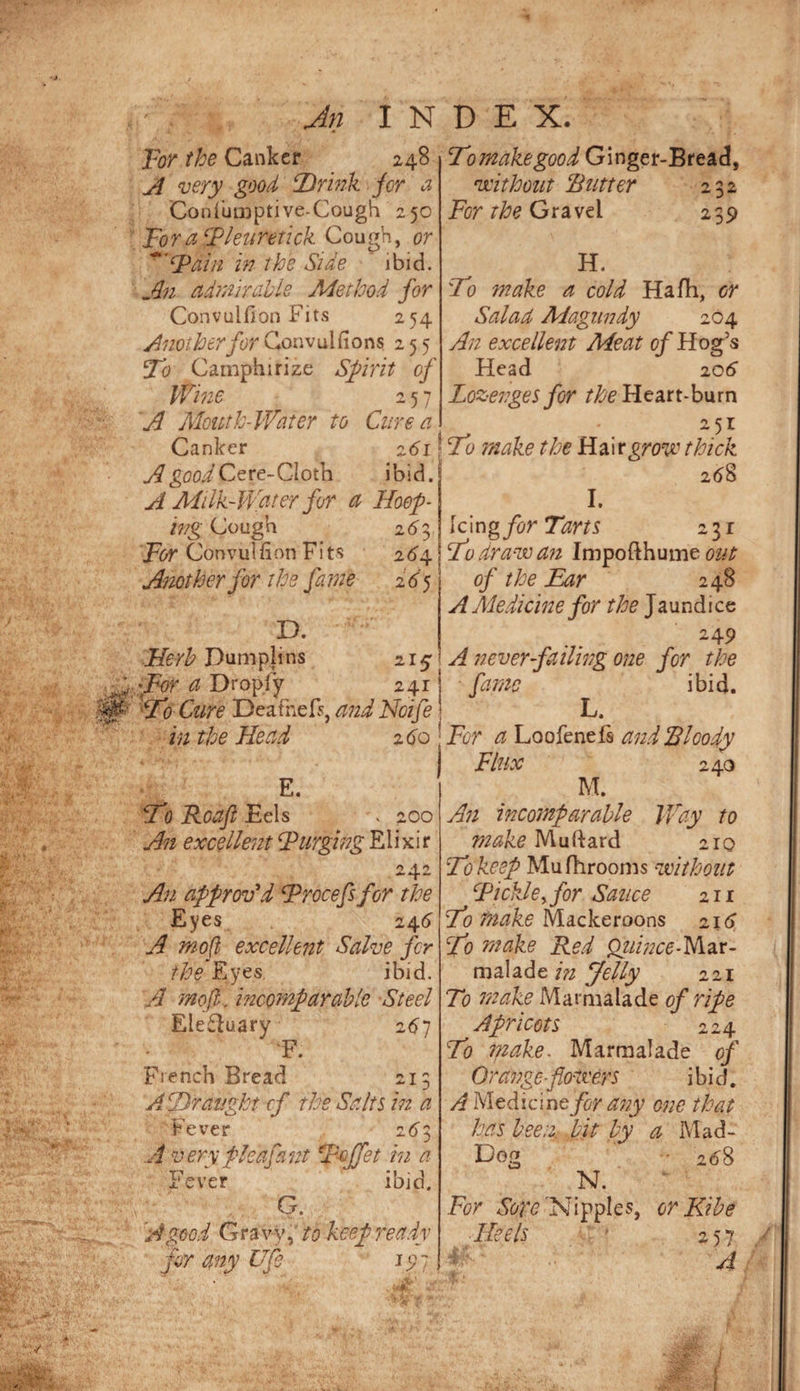 An INDEX.
For the Canker 248
A very good Drink for a
Conſumptive-Cough 250
For a Pleuretick Cough, or
Pain in the Side ibid.
An admirable Method for
Convulſion Fits 254
Another for Convulſions 255
To Camphirize Spirit of
Wine 257
A Mouth-Water to Cure a
Canker 261
A good Cere-Cloth ibid.
A Milk-Water for a Hoop-
ing Cough 263
For Convulſion Fits 264
Another for the ſame 265
D.
Herb Dumplins 215
For a Dropſy 241
To Cure Deafneſs, and Noiſe
in the Head 260
E.
To Roaſt Eels 200
An excellent Purging Elixir
242
An approv'd Proceſs for the
Eyes 246
A moſt excellent Salve for
the Eyes, ibid.
A moſt incomparable Steel
Electuary 267
F.
French Bread 213
A Draught of the Salts in a
Fever 263
A very pleaſant Poſſet in a
Fever ibid.
G.
A good Gravy, to keep ready
for any Uſe 197
To make good Ginger-Bread,
without Butter 232
For the Gravel 239
H.
To make a cold Haſh, or
Salad Magundy 204
An excellent Meat of Hog's
Head 206
Lozenges for the Heart-burn
251
To make the Hair grow thick
268
I.
Icing for Tarts 231
To draw an Impoſthume out
of the Ear 248
A Medicine for the Jaundice
249
A never-failing one for the
ſame ibid.
L.
For a Looſeneſs and Bloody
Flux 240
M.
An incomparable Way to
make Muſtard 210
To keep Muſhrooms without
Pickle, for Sauce 211
To make Mackeroons 216
To make Red Quince-Mar-
malade in Jelly 221
To make Marmalade of ripe
Apricots 224
To make Marmalade of
Orange-flowers ibid.
A Medicine for any one that
has been bit by a Mad-
Dog 268
N.
For Sore Nipples, or Kibe
Heels 257
A